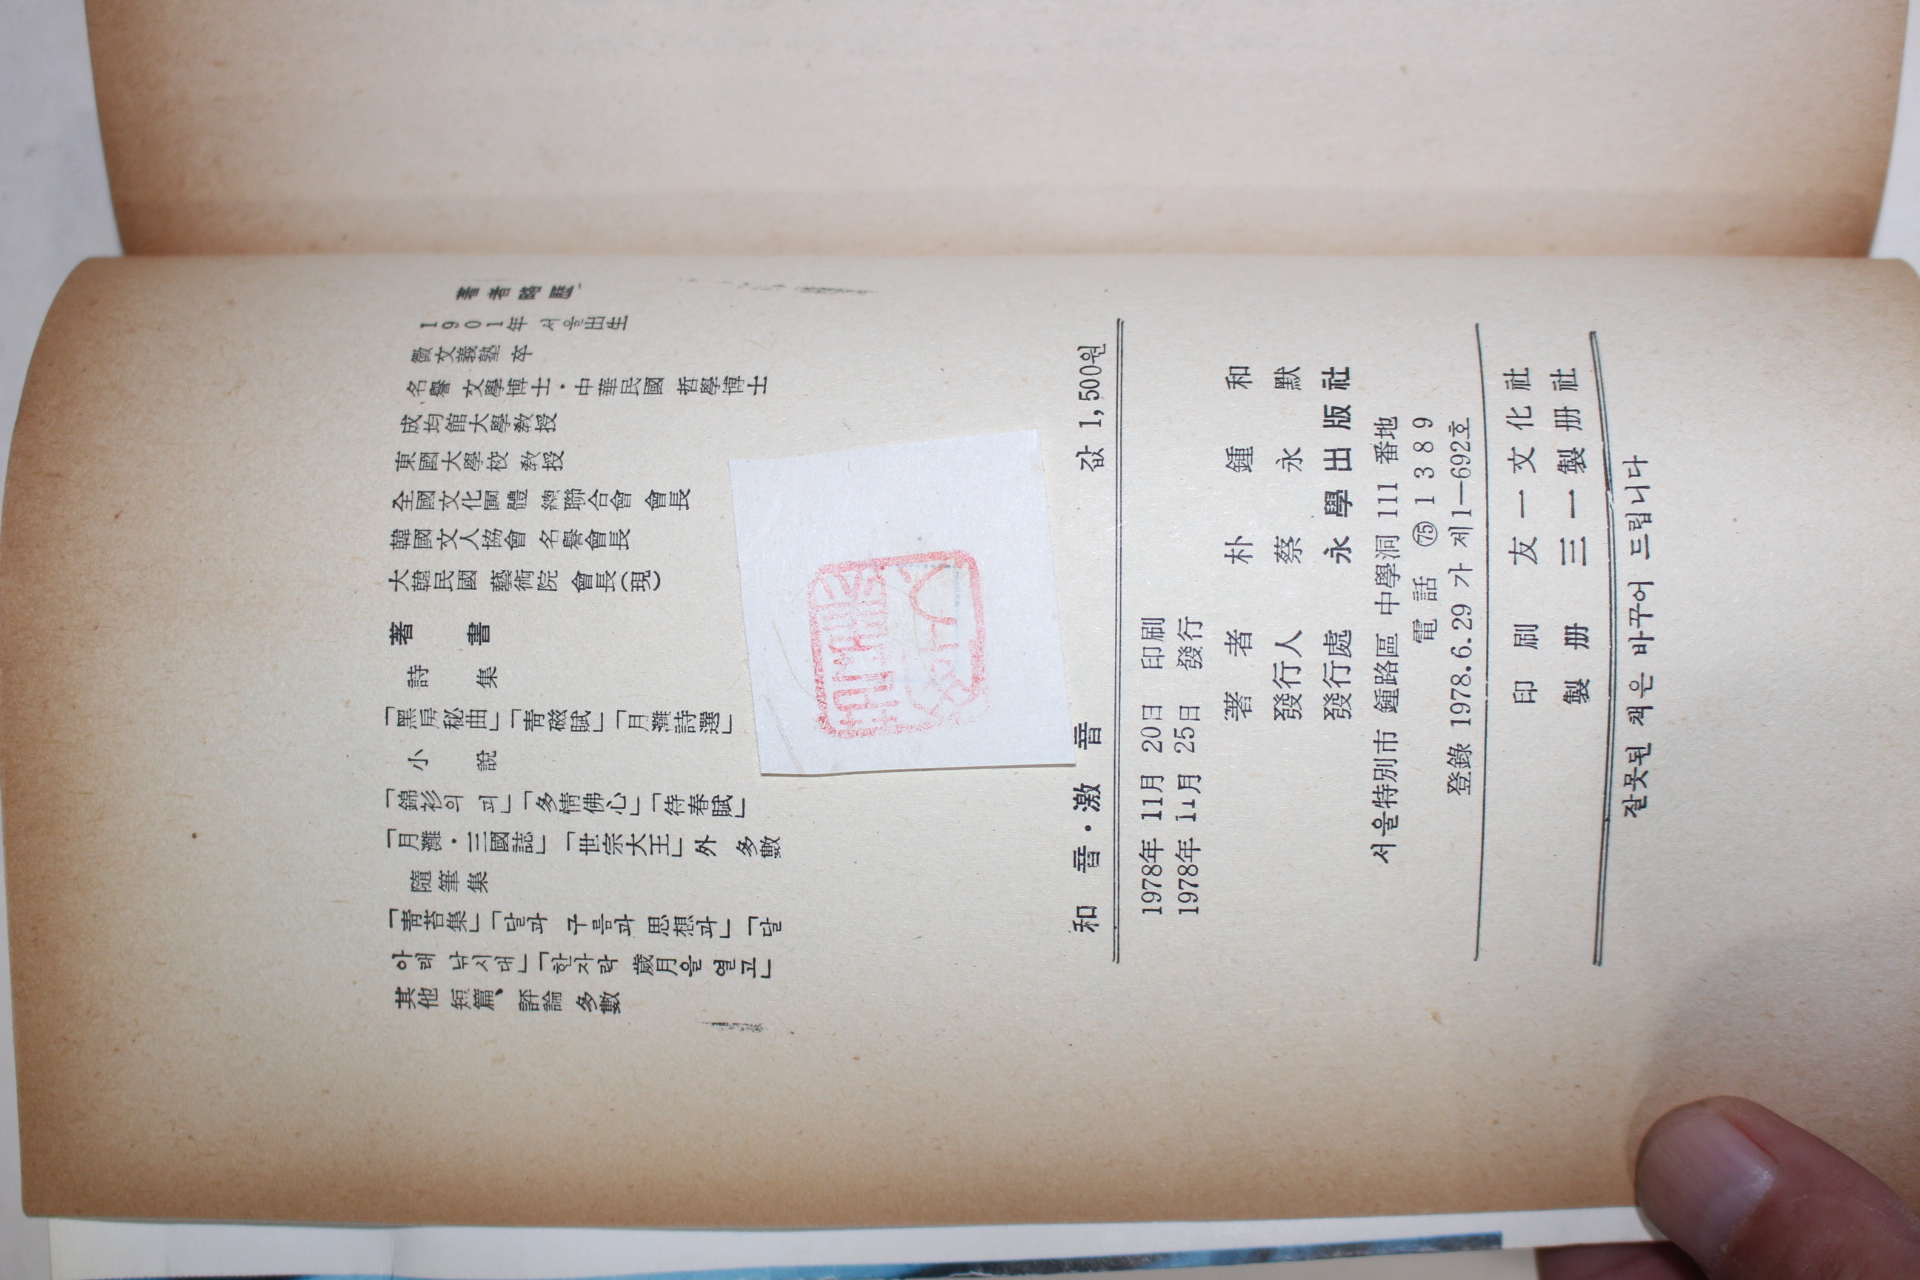 著者略歷
1901年 서울出生
徽文義塾 卒
名譽 文學博士·中華民國 哲學博士
成均館大學敎授
東國大學校 敎授
全國文化團體 總聯合會 會長
韓國文人協會 名譽會長
大韓民國 藝術院 會長(現)
著 書
詩 集
「黑房秘曲」「靑磁賦」「月灘詩選」
小 說
「錦衫의 피」「多情佛心」「待春賦」
「月灘·三國誌」「世宗大王」外 多數
隨筆集
「靑苔集」「달과 구름과 思想과」「달
아래 낚시대」「한자락 歲月을 열고」
其他 短篇、評論 多數
和 音·激 音 값 1,500원
1978年 11月 20日 印刷
1978年 11月 25日 發行
著 者 朴 鍾 和
發行人 蔡 永 默
發行處 永 學 出 版 社
서울特別市 鍾路區 中學洞 111 番地
電 話 ㊆ 1 3 8 9
登錄 1978.6.29 가 제1—692호
印 刷 友 一 文 化 社
製 册 三 一 製 册 社
잘못된 책은 바꾸어 드립니다